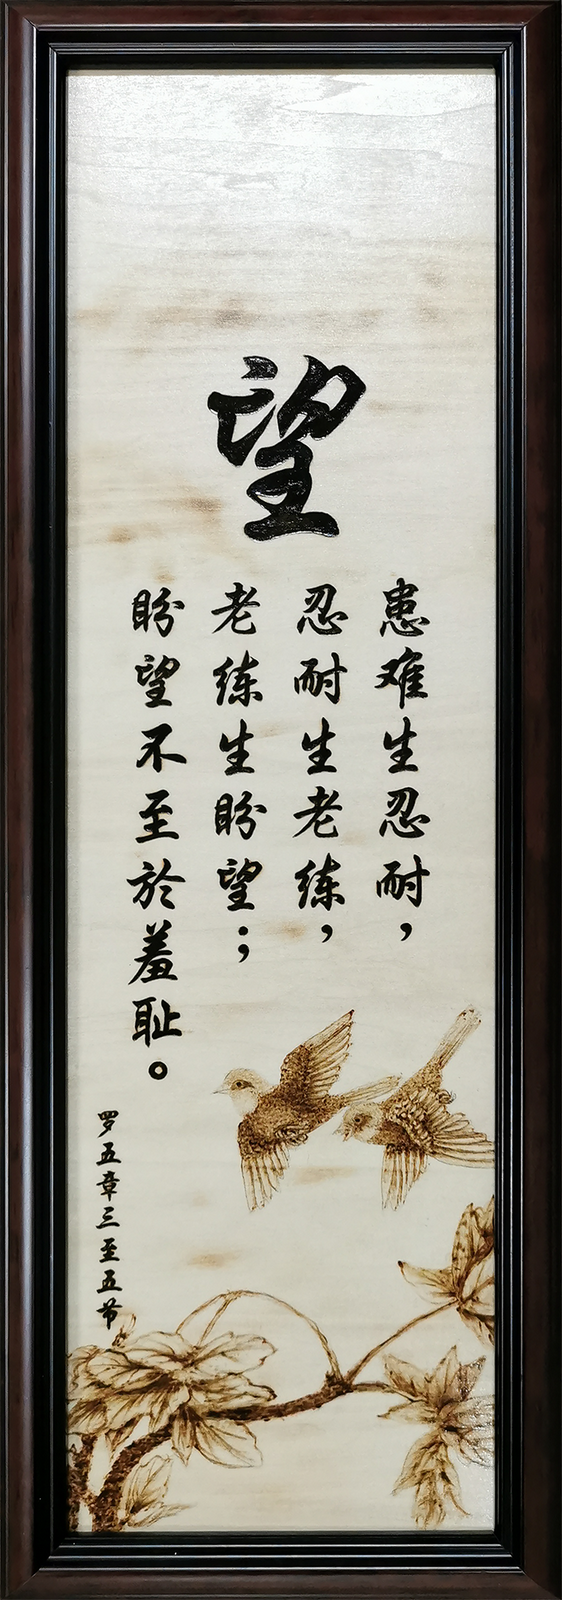 望
患难生忍耐，
忍耐生老练，
老练生盼望；
盼望不至於羞耻。
罗五章三至五节